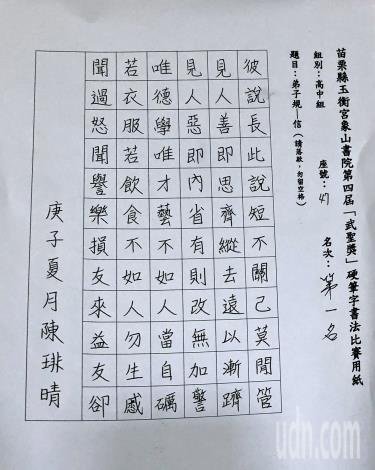 苗栗縣玉衡宮象山書院第四屆「武聖獎」硬筆字書法比賽用紙
組別：高中組　座號：47　名次：第一名
題目：弟子規—信（請落款，勿留空格）
彼說長此說短不關己莫閒管
見人善即思齊縱去遠以漸躋
見人惡即內省有則改無加警
唯德學唯才藝不如人當自礪
若衣服若飲食不如人勿生慼
聞過怒聞譽樂損友來益友卻
庚子夏月陳琲晴
udn.com